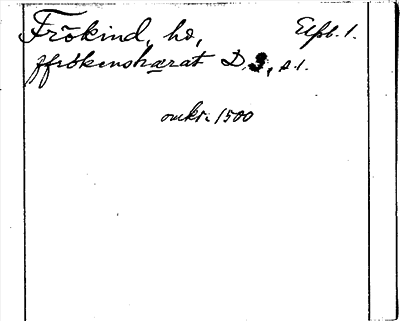 Frökind, hd, Elfsb. l.
ffrökenshærat D 3, s. 1.
omkr. 1500